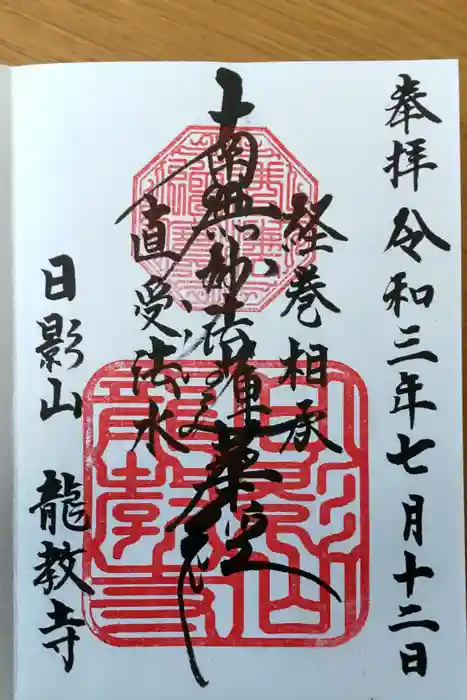 奉拝 令和三年七月十二日
経巻相承
南無妙法蓮華経
直受法水
日影山 龍教寺
日影山龍教寺